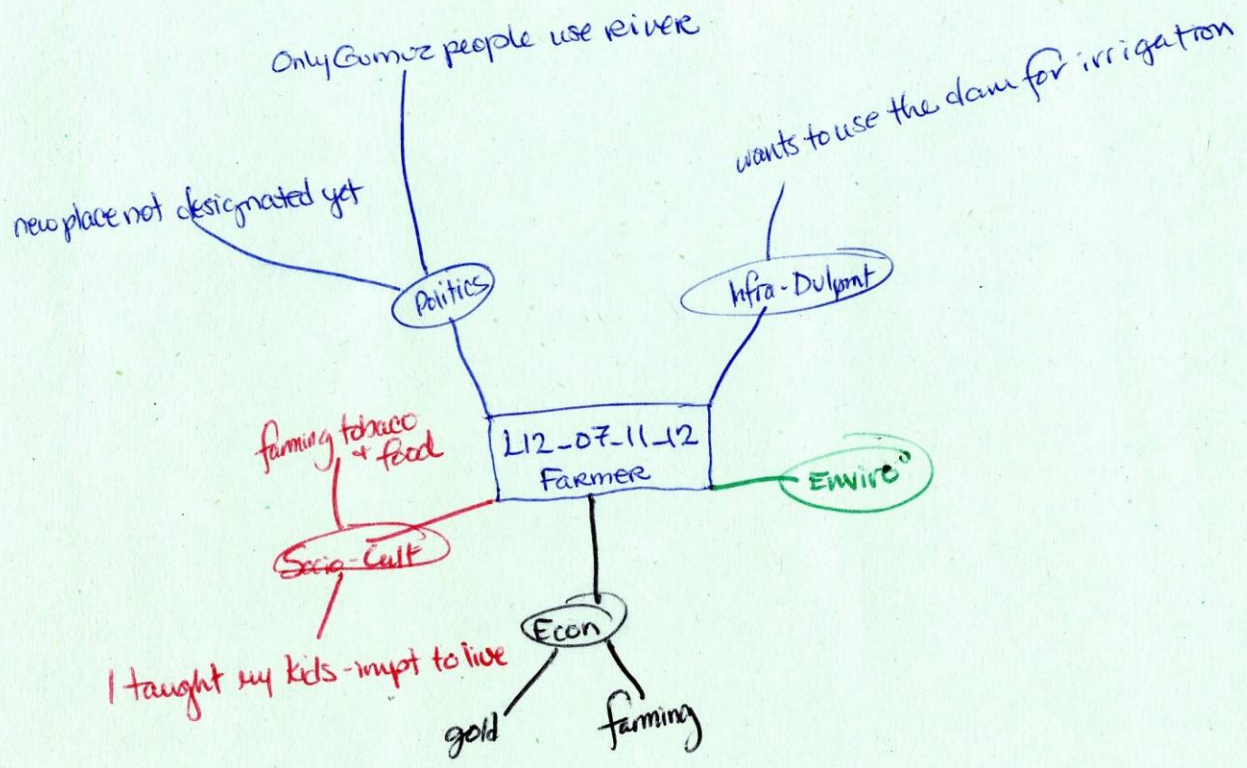 Only Gumuz people use reivere
wants to use the dam for irrigation
new place not designated yet
Politics
Infra-Dvlpmt
farming tobaco
+ food
L12_07_11_12
FARMER
Enviro
Socio-Cult
Econ
I taught my kids-impt to live
gold
farming